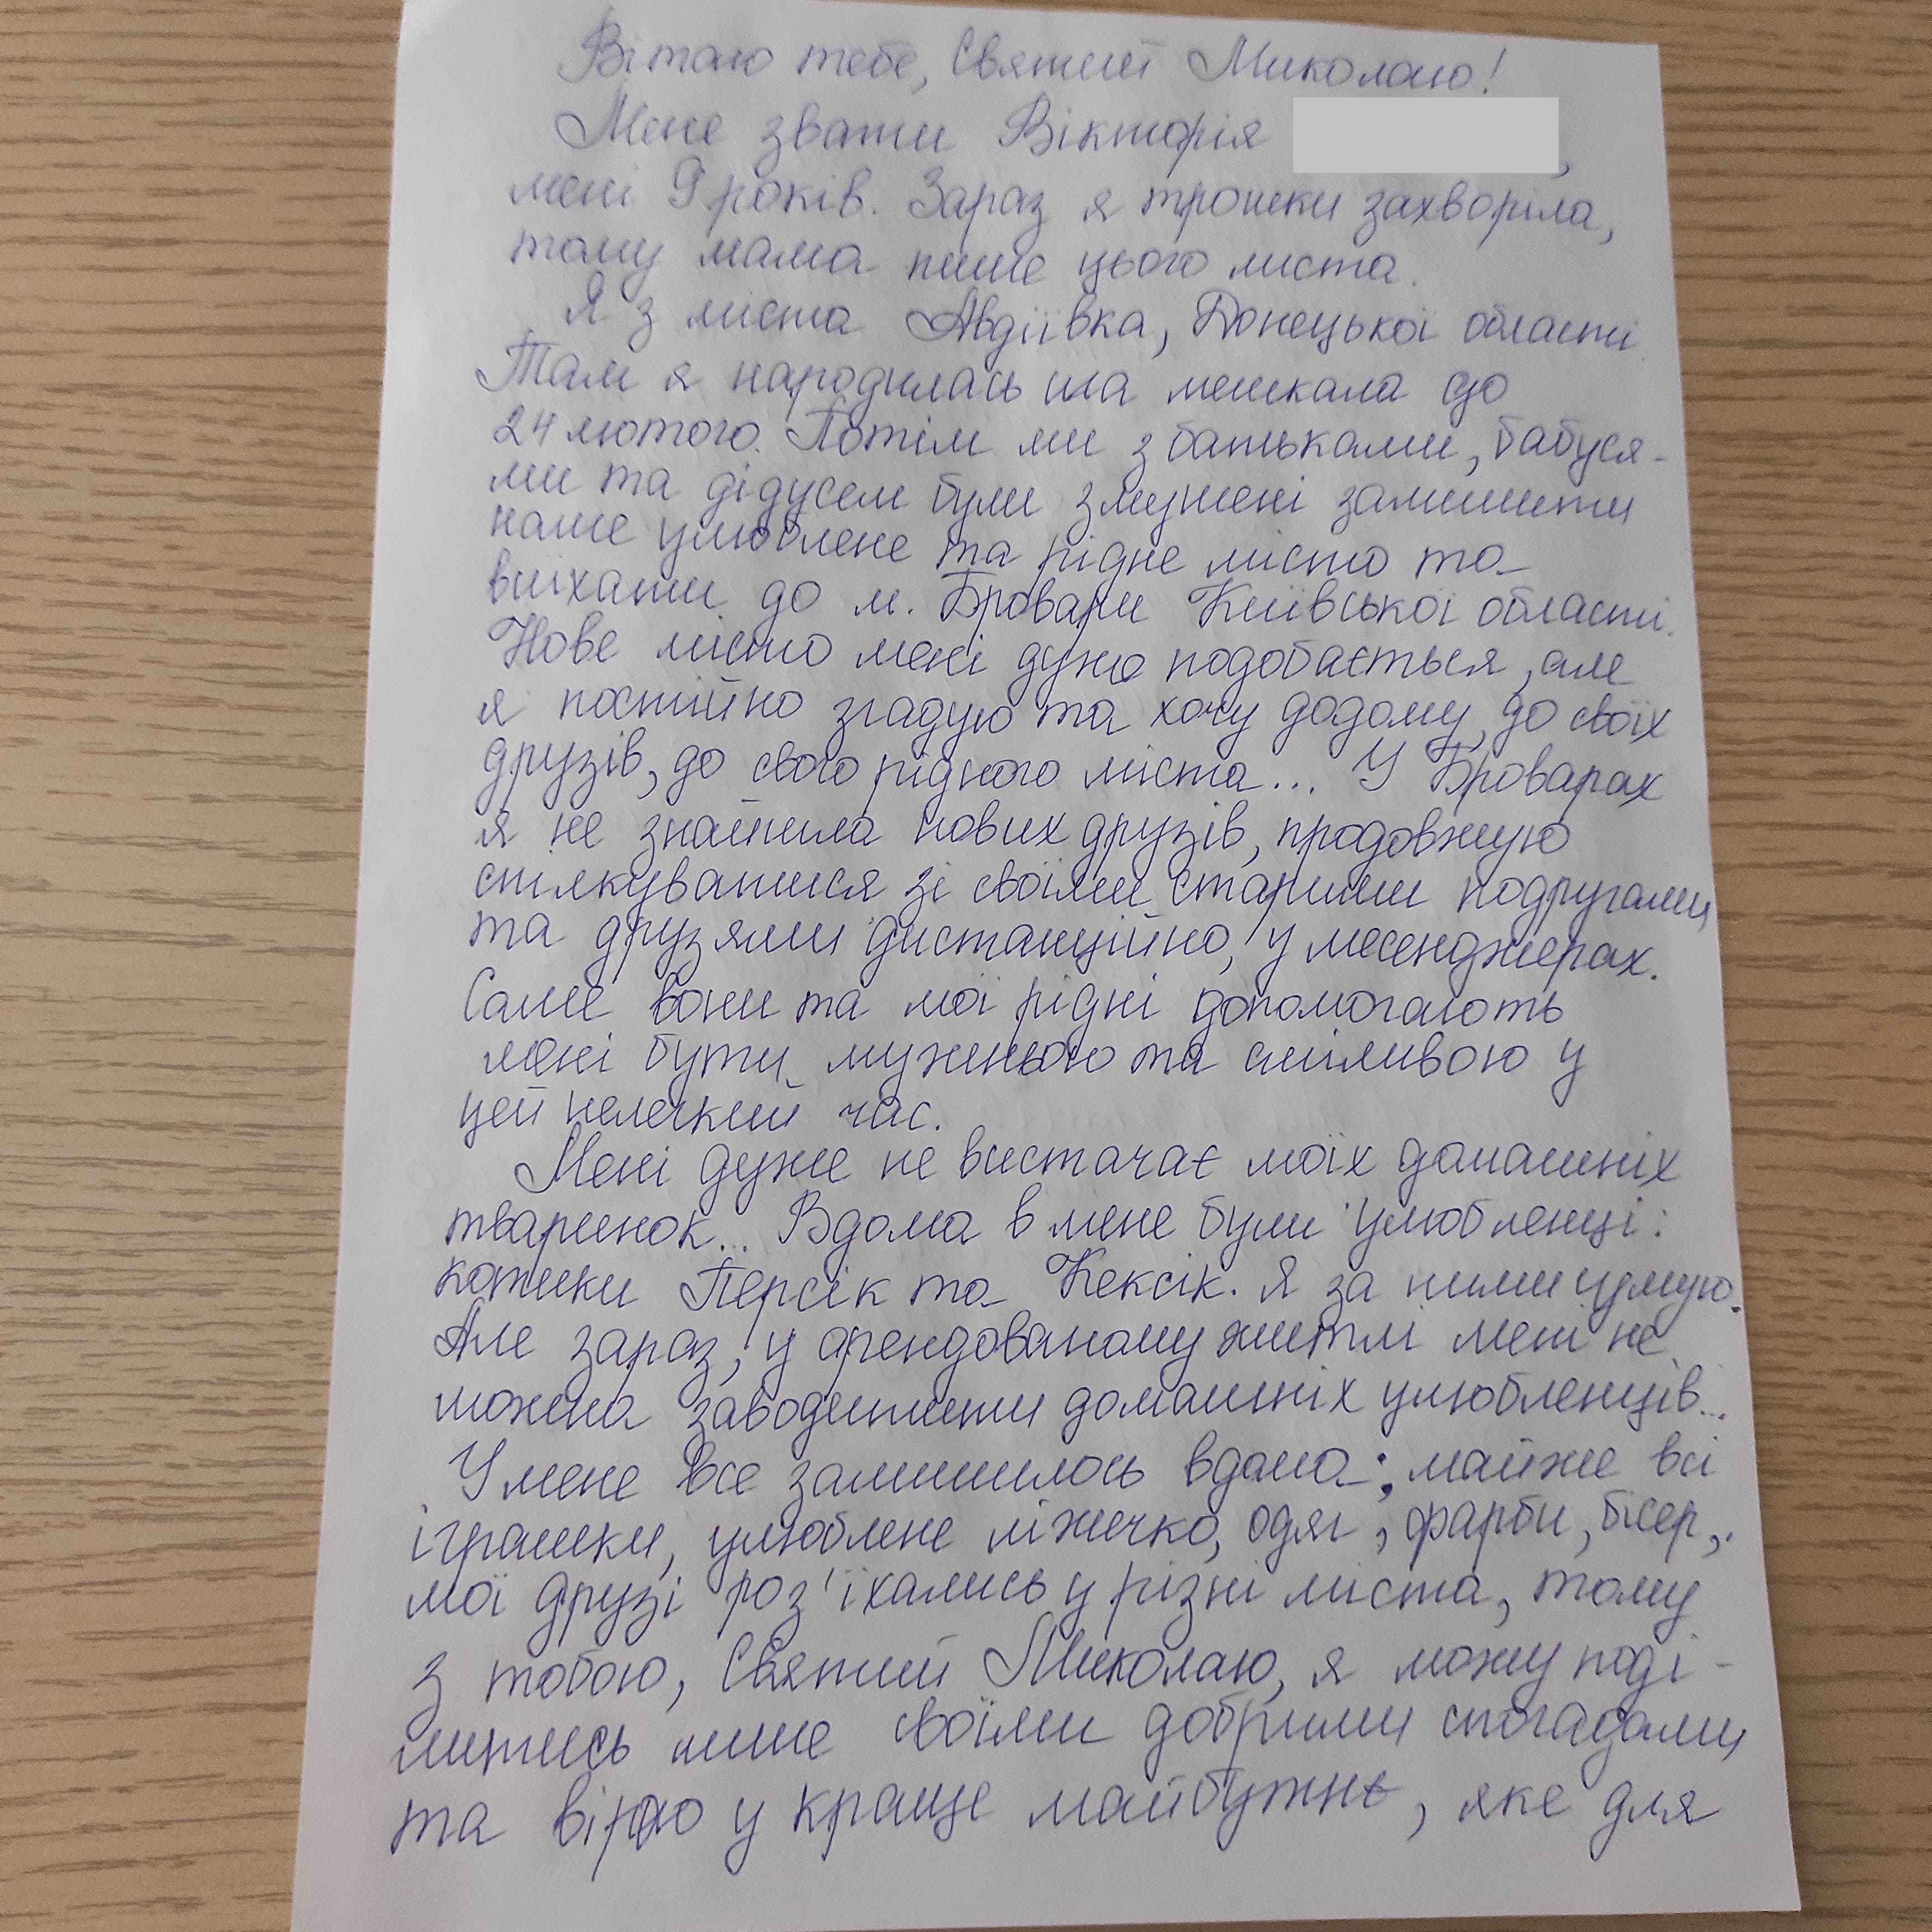 Вітаю тебе, Святий Миколаю!
Мене звати Вікторія ,
мені 9 років. Зараз я трошки захворіла,
тому мама пише цього листа.
Я з міста Авдіївка, Донецької області.
Там я народилась та мешкала до
24 лютого. Потім ми з батьками, бабуся-
ми та дідусем були змушені залишити
наше улюблене та рідне місто та
виїхати до м. Бровари Київської області.
Нове місто мені дуже подобається, але
я постійно згадую та хочу додому, до своїх
друзів, до свого рідного міста... У Броварах
я не знайшла нових друзів, продовжую
спілкуватися зі своїми старими подругами
та друзями дистанційно, у месенджерах.
Саме вони та мої рідні допомогають
мені бути мужньою та сміливою у
цей нелегкий час.
Мені дуже не вистачає моїх домашніх
тваринок... Вдома в мене були улюбленці:
котики Персік та Кексік. Я за ними сумую.
Але зараз, у арендованому житлі мені не
можна заводити домашніх улюбленців...
У мене все залишилось вдома; майже всі
іграшки, улюблене ліжечко, одяг, фарби, бісер,
мої друзі роз'їхались у різні міста, тому
з тобою, Святий Миколаю, я можу поді-
литись лише своїми добрими спогадами
та вірою у краще майбутнє, яке для